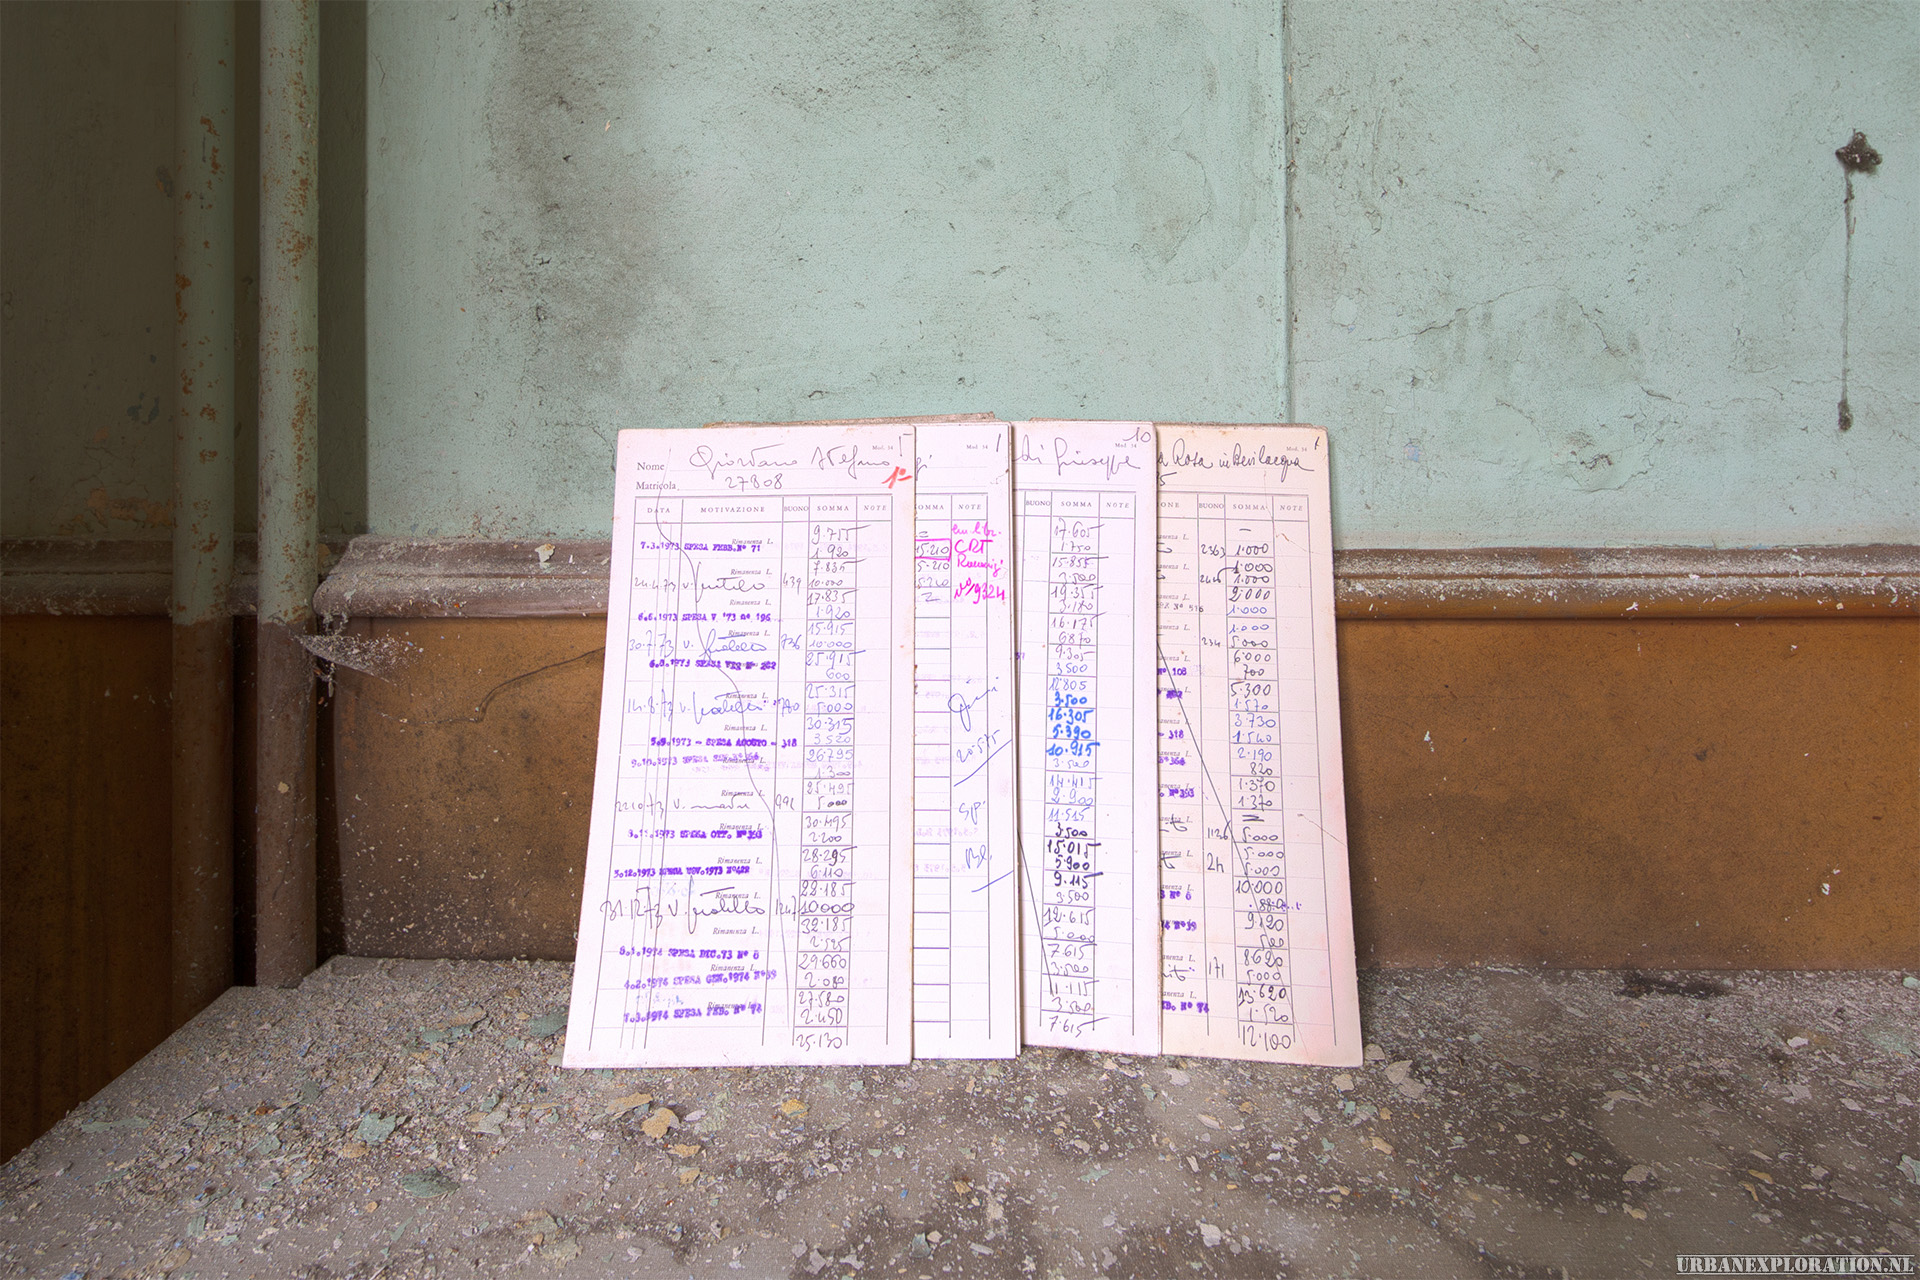 Mod. 54 5
Nome Giordano Stefano
1°
Matricola 27308
DATA MOTIVAZIONE BUONO SOMMA NOTE
9.755
7.3.1973 SPESA FEBB. N° 71 Rimanenza L. 1.920
Rimanenza L. 7.835
24.4.73 v. fratello 439 10.000
Rimanenza L. 17.835
6.6.1973 SPESA V '73 n° 196 1.920
Rimanenza L. 15.915
30.7.73 v. fratello 736 10.000
25.915
600
Rimanenza L. 25.315
14.8.73 v. fratello 5.000
Rimanenza L. 30.315
5.9.1973 - SPESA AGOSTO - 318 3.520
Rimanenza 26.795
9.10.1973 1.300
Rimanenza L. 25.495
22.10.73 v. madre 992 5.000
Rimanenza L. 30.495
8.11.1973 SPESA OTT. N° 393 2.200
Rimanenza L. 28.295
5.12.1973 SPESA NOV.1973 N° 422 6.110
Rimanenza L. 22.185
31.12.73 v. fratello 1247 10.000
Rimanenza L. 32.185
8.1.1974 SPESA DIC.73 N° 6 2.525
Rimanenza L. 29.660
4.2.1974 SPESA GEN.1974 N° 39 2.080
Rimanenza L. 27.580
7.3.1974 SPESA FEB. N° 74 2.450
25.130
Mod. 54 1
OMMA NOTE
15.210 CRT
5.210
5.210
N° 9324
20.575
Mod. 54 10
di Giuseppe
BUONO SOMMA NOTE
17.605
1.750
15.855
3.500
19.355
3.180
16.175
6870
9.305
3.500
12.805
3.500
16.305
5.390
10.915
3.500
14.415
2.900
11.515
3.500
15.015
5.900
9.115
3.500
12.615
5.000
7.615
3.500
11.115
3.500
7.615
Mod. 54 1
a Rosa in Bevilacqua
5
NE BUONO SOMMA NOTE
2363 1.000
1.000
1.000
2.000
N° 516 1.000
1.000
234 5.000
6.000
N° 108 700
5.300
1.570
3.730
- 318 1.540
2.190
N° 366 820
1.370
N° 393 1.370
1136 5.000
5.000
24 5.000
10.000
N° 6
9.120
N° 39 500
8620
171 5000
13.620
EB. N° 74 1.520
12.100
URBANEXPLORATION.NL